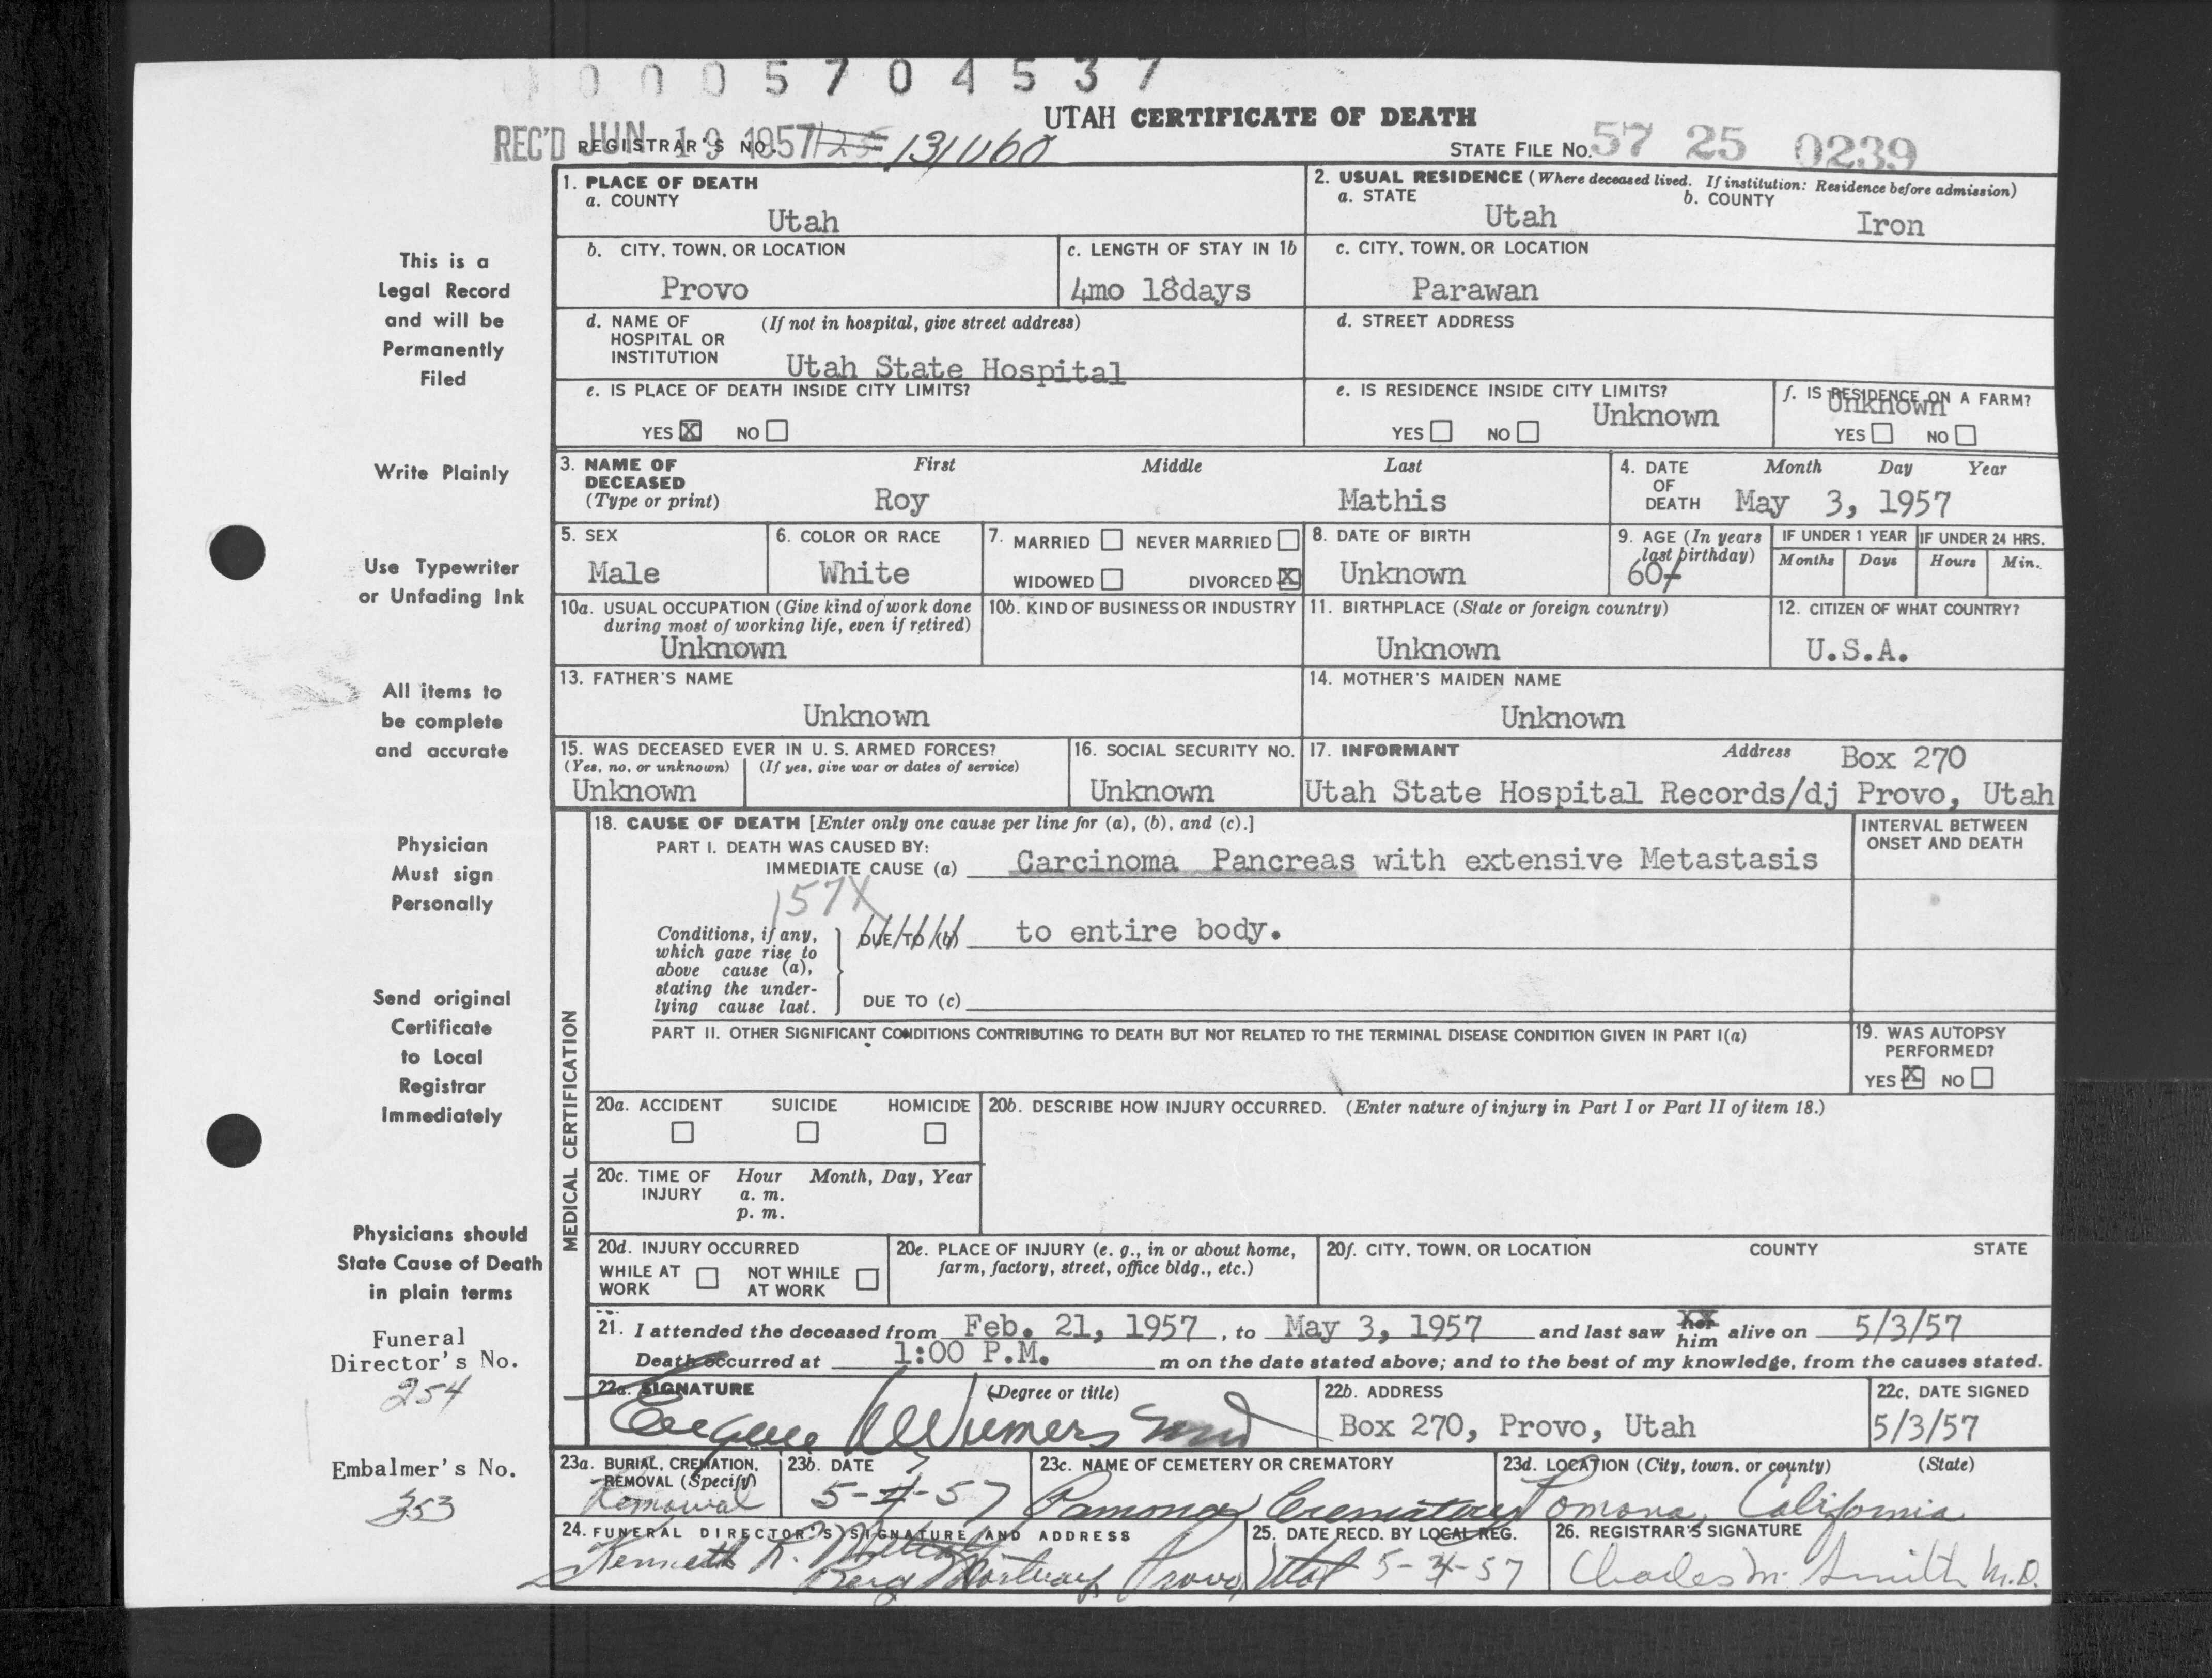 0 0 0 5 7 0 4 5 3 7
UTAH CERTIFICATE OF DEATH
REC'D JUN 19 1957
REGISTRAR'S NO. 125 131060
STATE FILE NO. 57 25 0239
This is a
Legal Record
and will be
Permanently
Filed
Write Plainly
Use Typewriter
or Unfading Ink
All items to
be complete
and accurate
Physician
Must sign
Personally
Send original
Certificate
to Local
Registrar
Immediately
Physicians should
State Cause of Death
in plain terms
Funeral
Director's No.
254
Embalmer's No.
353
1. PLACE OF DEATH
a. COUNTY
Utah
2. USUAL RESIDENCE (Where deceased lived. If institution: Residence before admission)
a. STATE b. COUNTY
Utah Iron
b. CITY, TOWN, OR LOCATION
Provo
c. LENGTH OF STAY IN 1b
4mo 18days
c. CITY, TOWN, OR LOCATION
Parawan
d. NAME OF (If not in hospital, give street address)
HOSPITAL OR
INSTITUTION
Utah State Hospital
d. STREET ADDRESS
e. IS PLACE OF DEATH INSIDE CITY LIMITS?
YES X NO
e. IS RESIDENCE INSIDE CITY LIMITS?
Unknown
YES NO
f. IS RESIDENCE ON A FARM?
Unknown
YES NO
3. NAME OF First Middle Last
DECEASED
(Type or print) Roy Mathis
4. DATE Month Day Year
OF
DEATH May 3, 1957
5. SEX
Male
6. COLOR OR RACE
White
7. MARRIED NEVER MARRIED
WIDOWED DIVORCED X
8. DATE OF BIRTH
Unknown
9. AGE (In years
last birthday)
60+
IF UNDER 1 YEAR
Months Days
IF UNDER 24 HRS.
Hours Min.
10a. USUAL OCCUPATION (Give kind of work done
during most of working life, even if retired)
Unknown
10b. KIND OF BUSINESS OR INDUSTRY
11. BIRTHPLACE (State or foreign country)
Unknown
12. CITIZEN OF WHAT COUNTRY?
U.S.A.
13. FATHER'S NAME
Unknown
14. MOTHER'S MAIDEN NAME
Unknown
15. WAS DECEASED EVER IN U. S. ARMED FORCES?
(Yes, no, or unknown) (If yes, give war or dates of service)
Unknown
16. SOCIAL SECURITY NO.
Unknown
17. INFORMANT Address Box 270
Utah State Hospital Records/dj Provo, Utah
MEDICAL CERTIFICATION
18. CAUSE OF DEATH [Enter only one cause per line for (a), (b), and (c).]
INTERVAL BETWEEN
ONSET AND DEATH
PART I. DEATH WAS CAUSED BY:
IMMEDIATE CAUSE (a) Carcinoma Pancreas with extensive Metastasis
157X
Conditions, if any,
which gave rise to
above cause (a),
stating the under-
lying cause last.
DUE TO (b) to entire body.
DUE TO (c)
PART II. OTHER SIGNIFICANT CONDITIONS CONTRIBUTING TO DEATH BUT NOT RELATED TO THE TERMINAL DISEASE CONDITION GIVEN IN PART I(a)
19. WAS AUTOPSY
PERFORMED?
YES X NO
20a. ACCIDENT SUICIDE HOMICIDE
20b. DESCRIBE HOW INJURY OCCURRED. (Enter nature of injury in Part I or Part II of item 18.)
20c. TIME OF Hour Month, Day, Year
INJURY a. m.
p. m.
20d. INJURY OCCURRED
WHILE AT NOT WHILE
WORK AT WORK
20e. PLACE OF INJURY (e. g., in or about home,
farm, factory, street, office bldg., etc.)
20f. CITY, TOWN, OR LOCATION COUNTY STATE
21. I attended the deceased from Feb. 21, 1957, to May 3, 1957 and last saw her him alive on 5/3/57
Death occurred at 1:00 P.M. m on the date stated above; and to the best of my knowledge, from the causes stated.
22a. SIGNATURE (Degree or title)
Eugene Wiemers
22b. ADDRESS
Box 270, Provo, Utah
22c. DATE SIGNED
5/3/57
23a. BURIAL, CREMATION,
REMOVAL (Specify)
Removal
23b. DATE
5-4-57
23c. NAME OF CEMETERY OR CREMATORY
Pamona Crematory
23d. LOCATION (City, town, or county) (State)
Pomona, California
24. FUNERAL DIRECTOR'S SIGNATURE AND ADDRESS
Kenneth R.
Berg Mortuary Provo, Utah
25. DATE RECD. BY LOCAL REG.
5-4-57
26. REGISTRAR'S SIGNATURE
Charles M. Smith M.D.